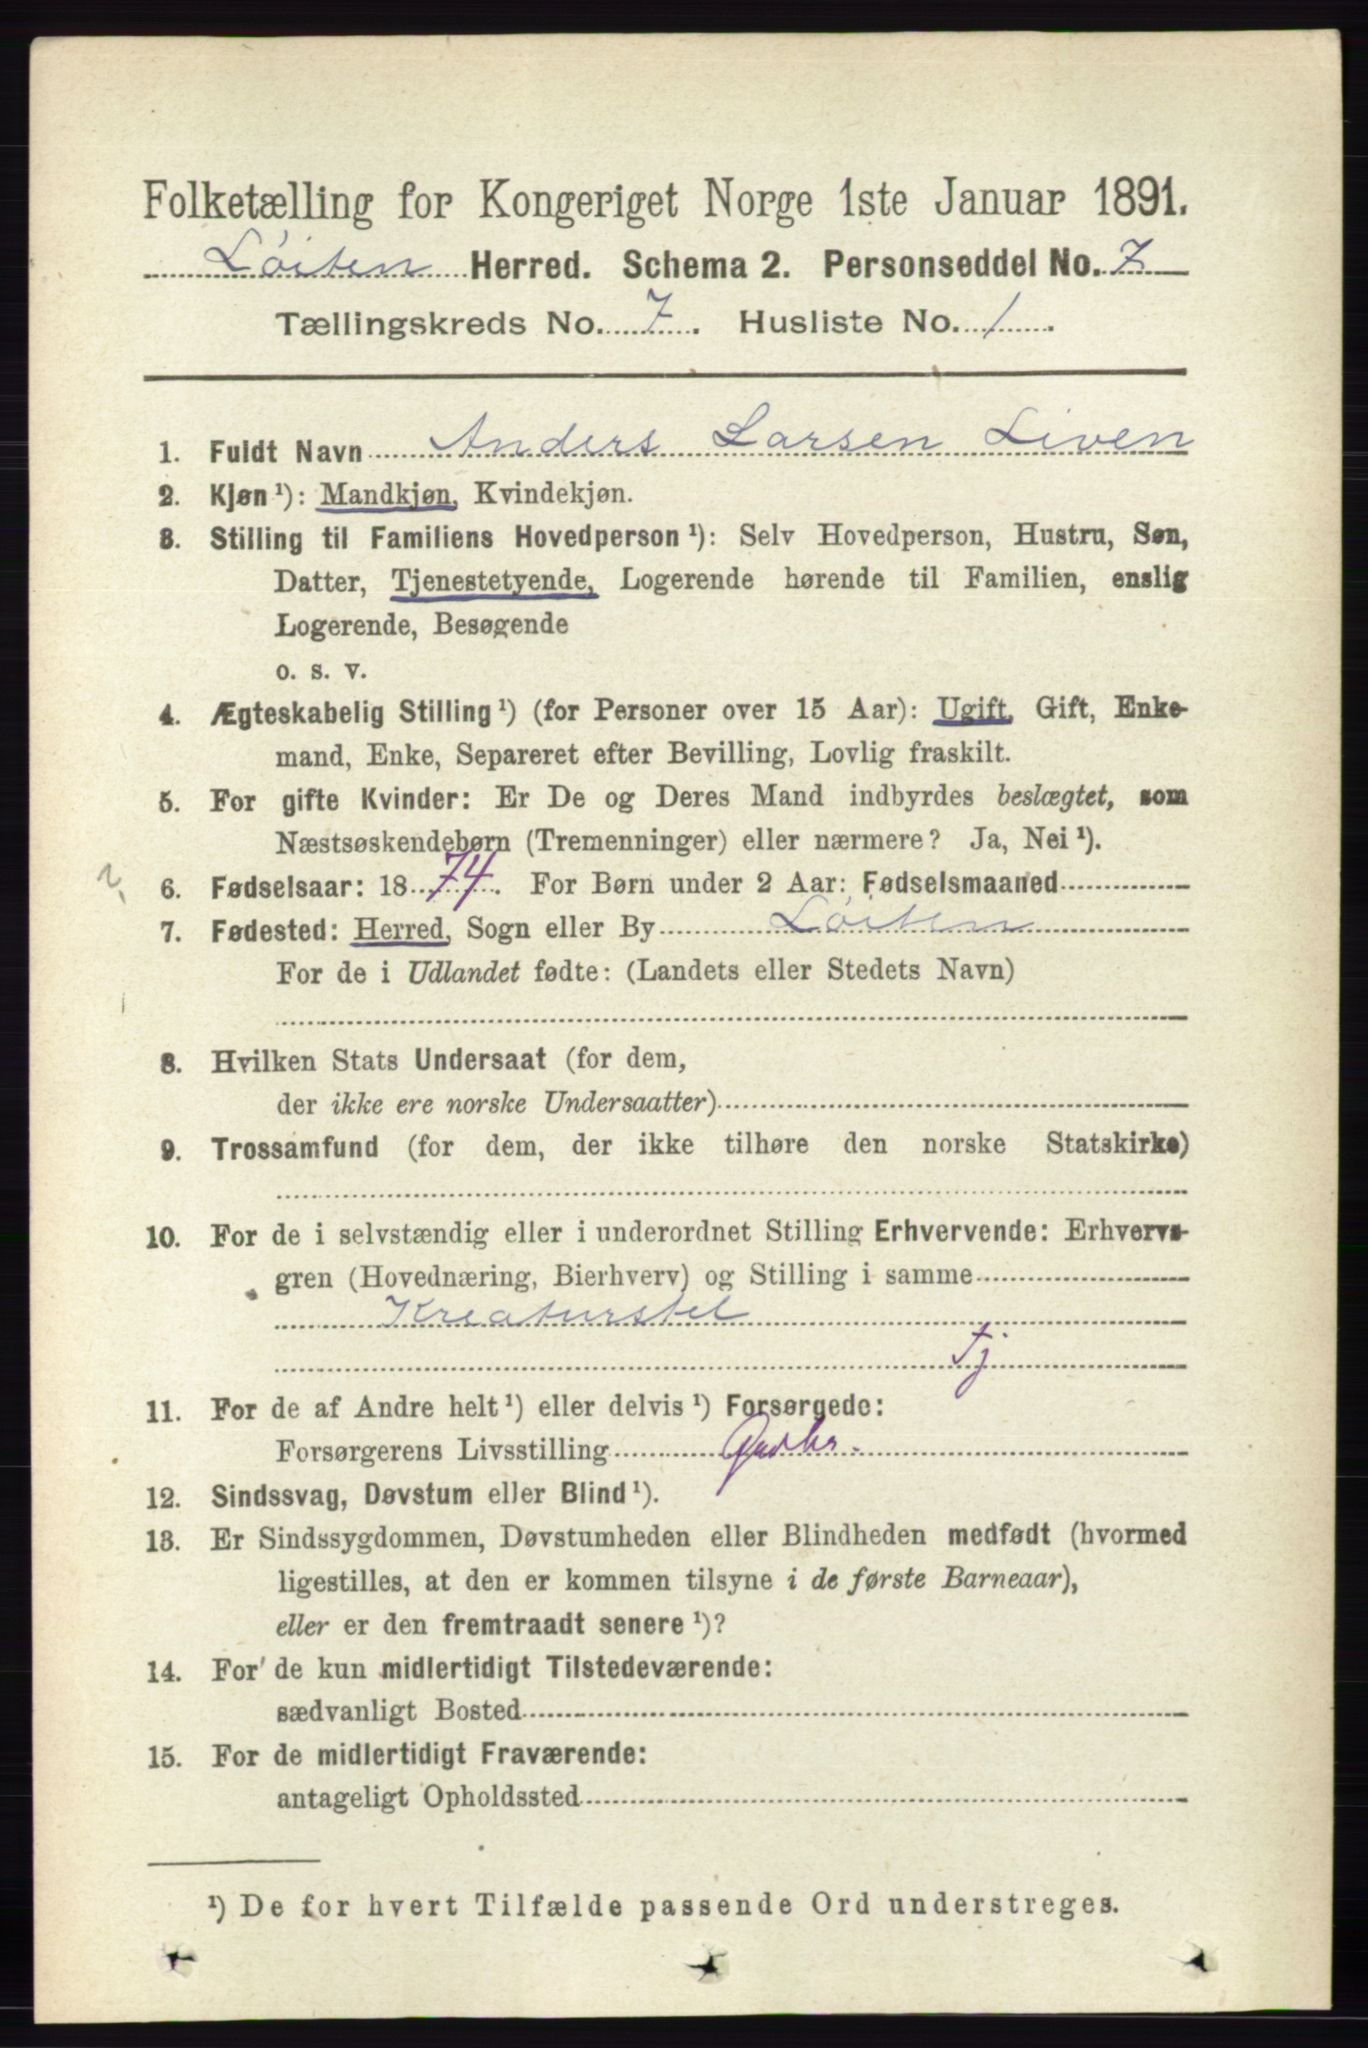 Folketælling for Kongeriget Norge 1ste Januar 1891.
Löiten Herred. Schema 2. Personseddel No. 7
Tællingskreds No. 7. Husliste No. 1.
1. Fuldt Navn Anders Larsen Liven
2. Kjøn ¹): Mandkjøn, Kvindekjøn.
3. Stilling til Familiens Hovedperson ¹): Selv Hovedperson, Hustru, Søn,
Datter, Tjenestetyende, Logerende hørende til Familien, enslig
Logerende, Besøgende
o. s. v.
4. Ægteskabelig Stilling ¹) (for Personer over 15 Aar): Ugift, Gift, Enke-
mand, Enke, Separeret efter Bevilling, Lovlig fraskilt.
5. For gifte Kvinder: Er De og Deres Mand indbyrdes beslægtet, som
Næstsøskendebørn (Tremenninger) eller nærmere? Ja, Nei ¹).
6. Fødselsaar: 1874. For Børn under 2 Aar: Fødselsmaaned
7. Fødested: Herred, Sogn eller By Löiten
For de i Udlandet fødte: (Landets eller Stedets Navn)
8. Hvilken Stats Undersaat (for dem,
der ikke ere norske Undersaatter)
9. Trossamfund (for dem, der ikke tilhøre den norske Statskirke)
10. For de i selvstændig eller i underordnet Stilling Erhvervende: Erhvervs-
gren (Hovednæring, Bierhverv) og Stilling i samme
Kreaturstel
Tj
11. For de af Andre helt ¹) eller delvis ¹) Forsørgede:
Forsørgerens Livsstilling
12. Sindssvag, Døvstum eller Blind ¹).
13. Er Sindssygdommen, Døvstumheden eller Blindheden medfødt (hvormed
ligestilles, at den er kommen tilsyne i de første Barneaar),
eller er den fremtraadt senere ¹)?
14. For de kun midlertidigt Tilstedeværende:
sædvanligt Bosted
15. For de midlertidigt Fraværende:
antageligt Opholdssted
¹) De for hvert Tilfælde passende Ord understreges.